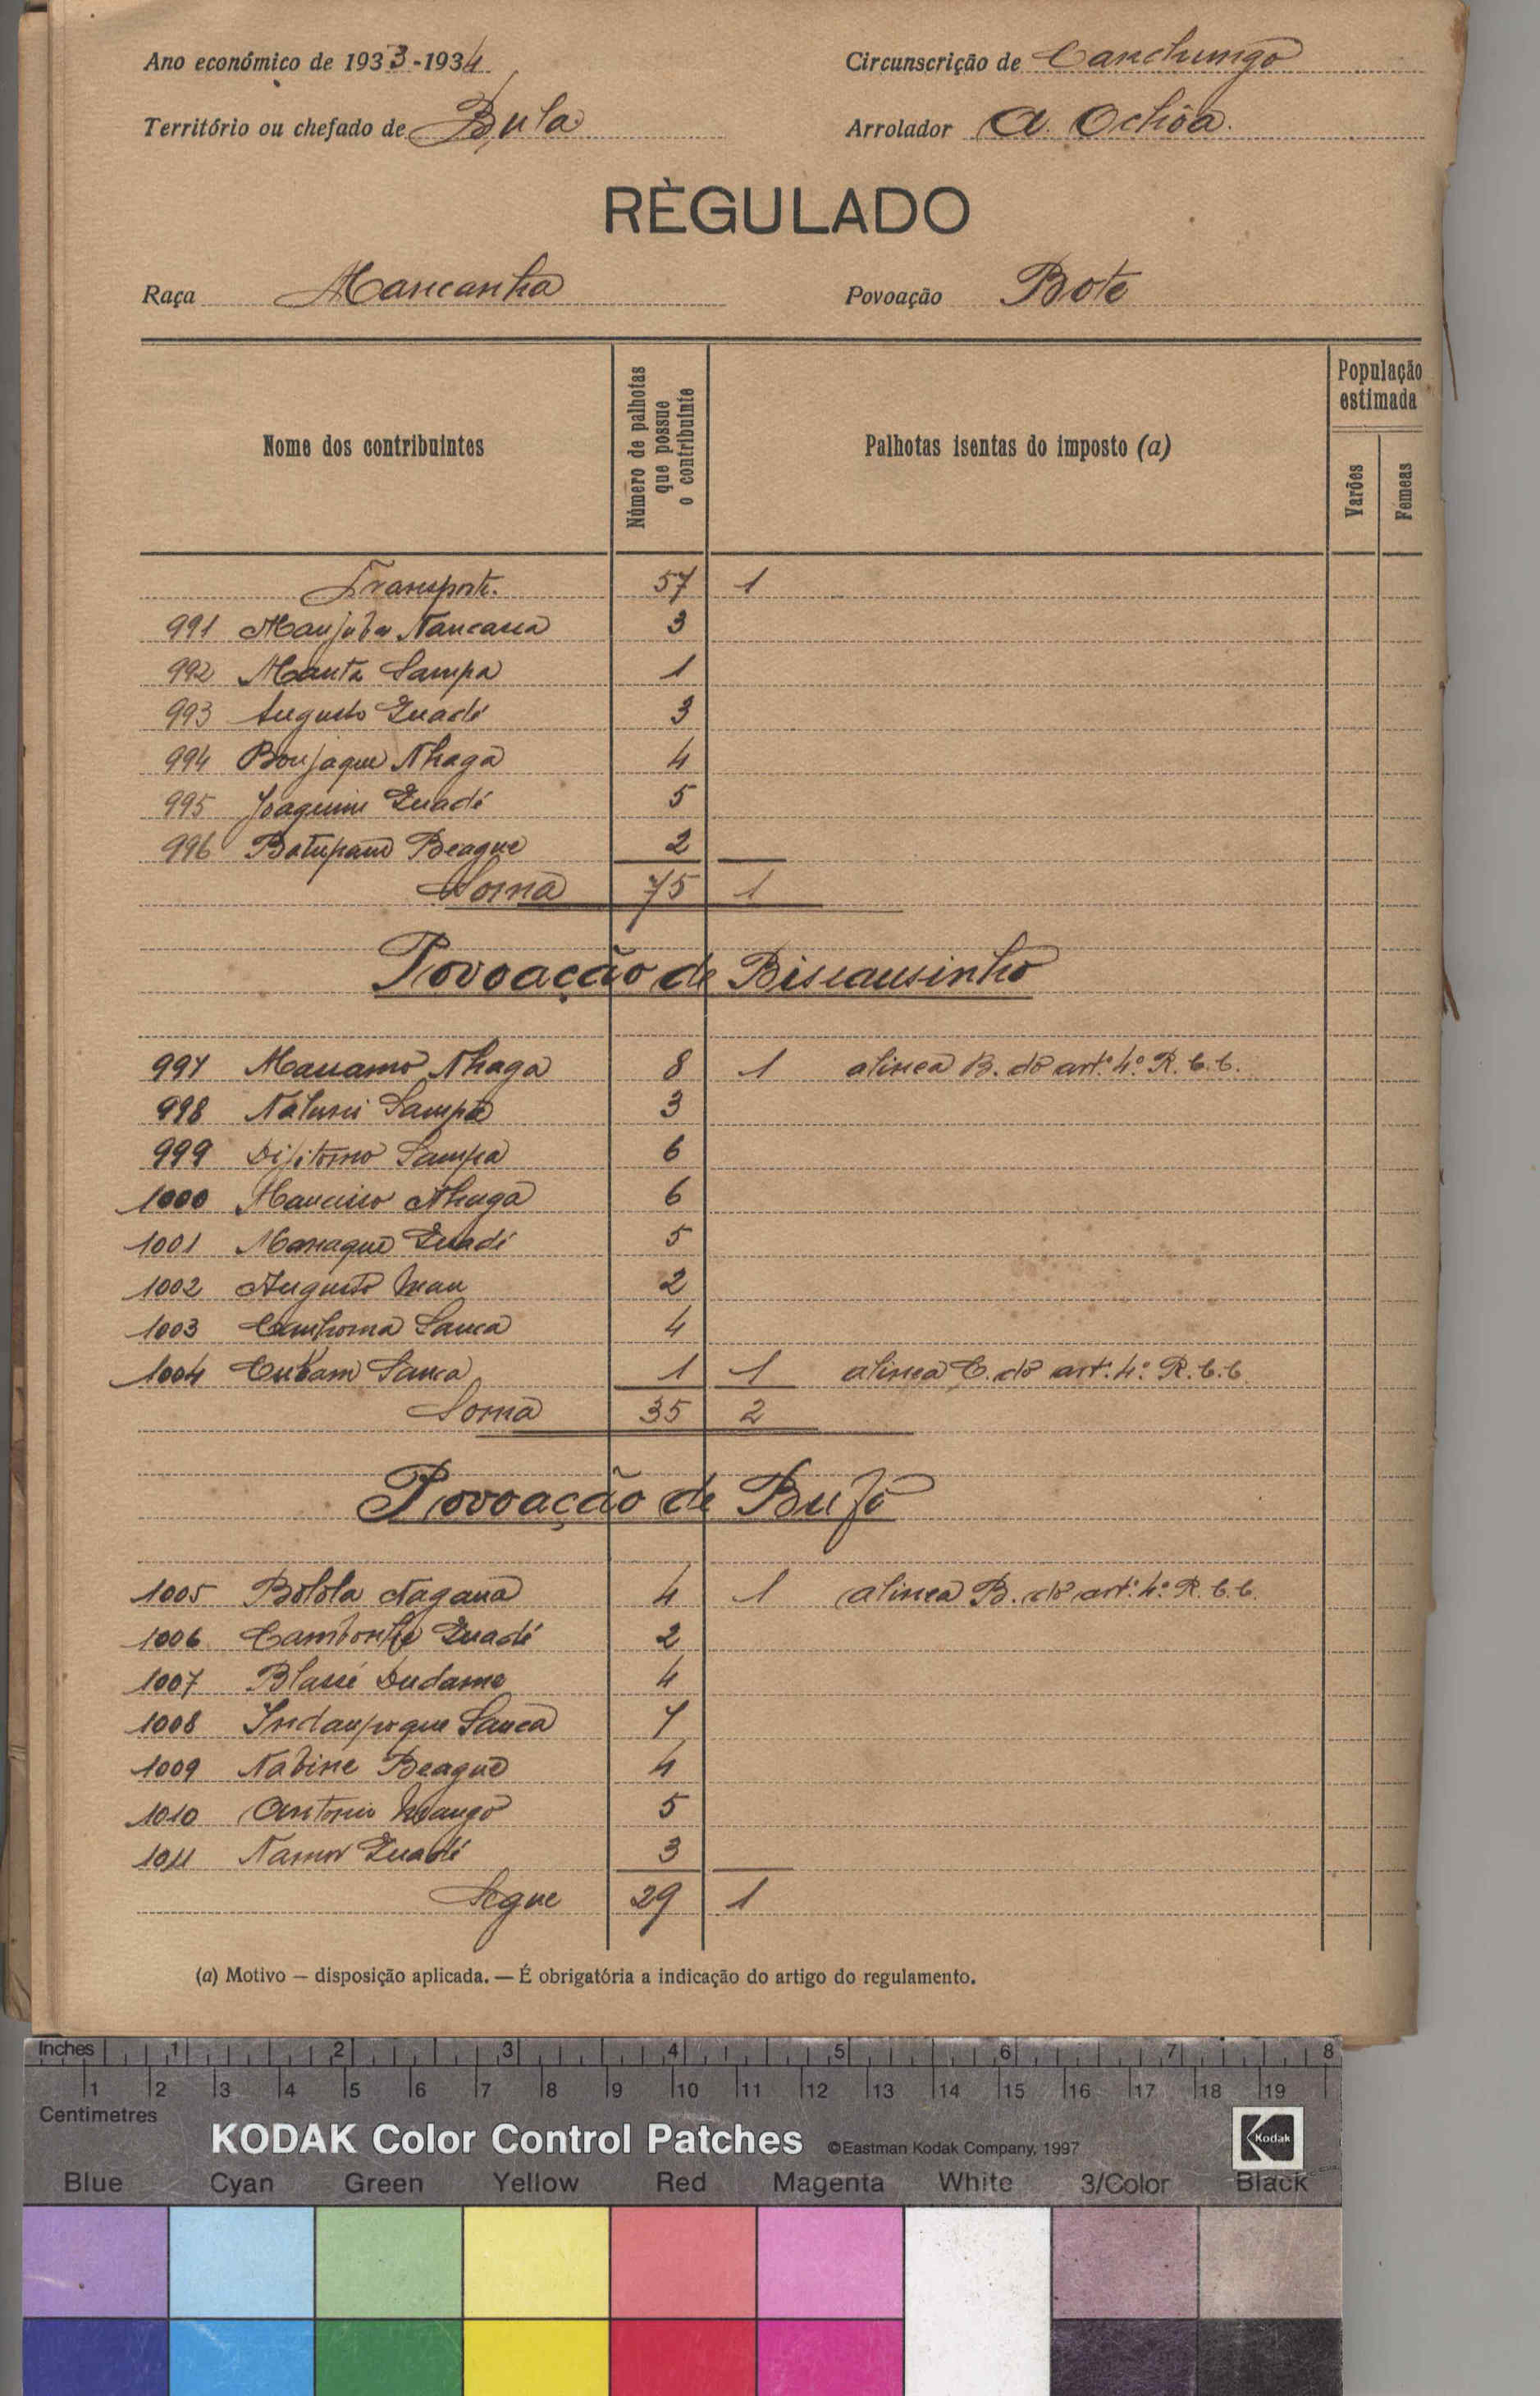 Ano económico de 1933-1934 Circunscrição de Canchungo
Território ou chefado de Bula Arrolador A. Ochôa.
RÈGULADO
Raça Mancanha Povoação Bote
Nome dos contribuintes
Número de palhotas que possue o contribuinte
Palhotas isentas do imposto (a)
População estimada
Varões
Fêmeas
Transporte. 57 1
991 Manjuba Nancassa 3
992 Manta Sampa 1
993 Augusto Quadé 3
994 Bonjaque Nhaga 4
995 Joaquim Quadé 5
996 Batupam Beague 2
Soma 75 1
Povoação de Biscausinho
997 Mauamo Nhaga 8 1 alinea B. do art.º 4.º R. C. C.
998 Sampa 3
999 Dijitomo Sampa 6
1000 Nhaga 6
1001 Manaque Quadé 5
1002 Augusto 2
1003 Canhoma Sanca 4
1004 Cubam Sanca 1 1 alinea C. do art.º 4.º R. C. C.
Soma 35 2
Povoação de Bufó
1005 Bolola Nagana 4 1 alinea B. do art.º 4.º R. C. C.
1006 Quadé 2
1007 4
1008 Indaupoque Sanca 7
1009 Nabine Beague 4
1010 Antonio 5
1011 Quadé 3
Segue 29 1
(a) Motivo — disposição aplicada. — É obrigatória a indicação do artigo do regulamento.
Inches 1 2 3 4 5 6 7 8
1 2 3 4 5 6 7 8 9 10 11 12 13 14 15 16 17 18 19
Centimetres
KODAK Color Control Patches ©Eastman Kodak Company, 1997 Kodak
Blue Cyan Green Yellow Red Magenta White 3/Color Black